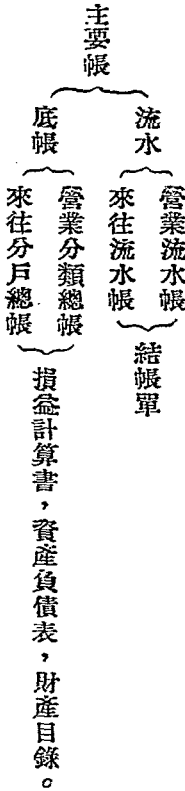 主要帳
流水
營業流水帳
來往流水帳
結帳單
底帳
營業分類總帳
來往分戶總帳
損益計算書，資產負債表，財產目錄。